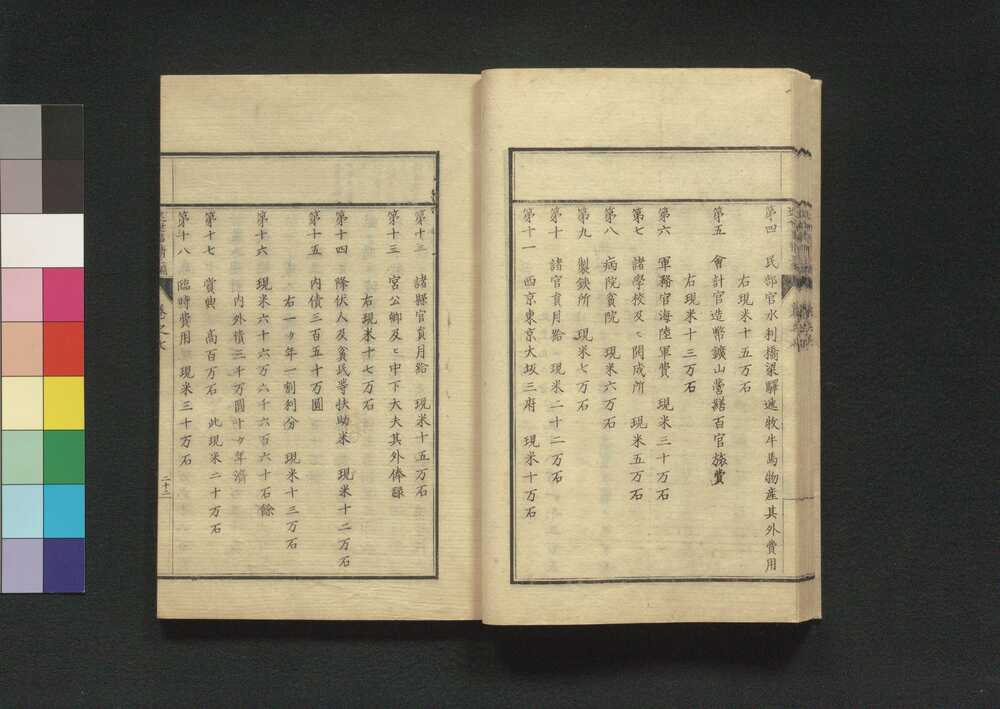 第四 民部官水利橋梁驛遞牧牛馬物産其外費用
右現米十五万石
第五 會計官造幣鑛山營繕百官旅費
右現米十三万石
第六 軍務官海陸軍費 現米三十万石
第七 諸學校及ヒ開成所 現米五万石
第八 病院貧院 現米六万石
第九 製鉄所 現米七万石
第十 諸官員月給 現米二十二万石
第十一 西京東京大坂三府 現米十万石
第十二 諸縣官員月給 現米十五万石
第十三 宮公卿及ヒ中下大夫其外俸祿
右現米十七万石
第十四 降伏人及貧民等扶助米 現米十二万石
第十五 内債三百五十万圓
右一ケ年一割利分 現米十三万石
第十六 現米六十六万六千六百六十石餘
内外債三千万圓十ケ年濟
第十七 賞典 高百万石 此現米二十万石
第十八 臨時費用 現米三十万石
二十二